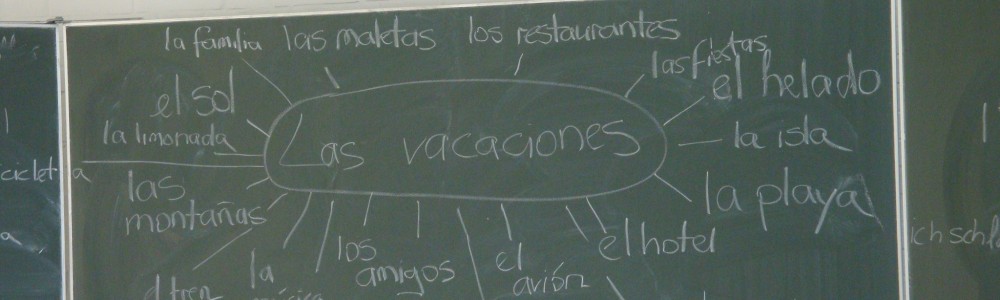 la familia
las maletas
los restaurantes
las fiestas
el helado
el sol
la limonada
Las vacaciones
la isla
las
montañas
la playa
los
amigos
el
avión
el hotel
la
ich